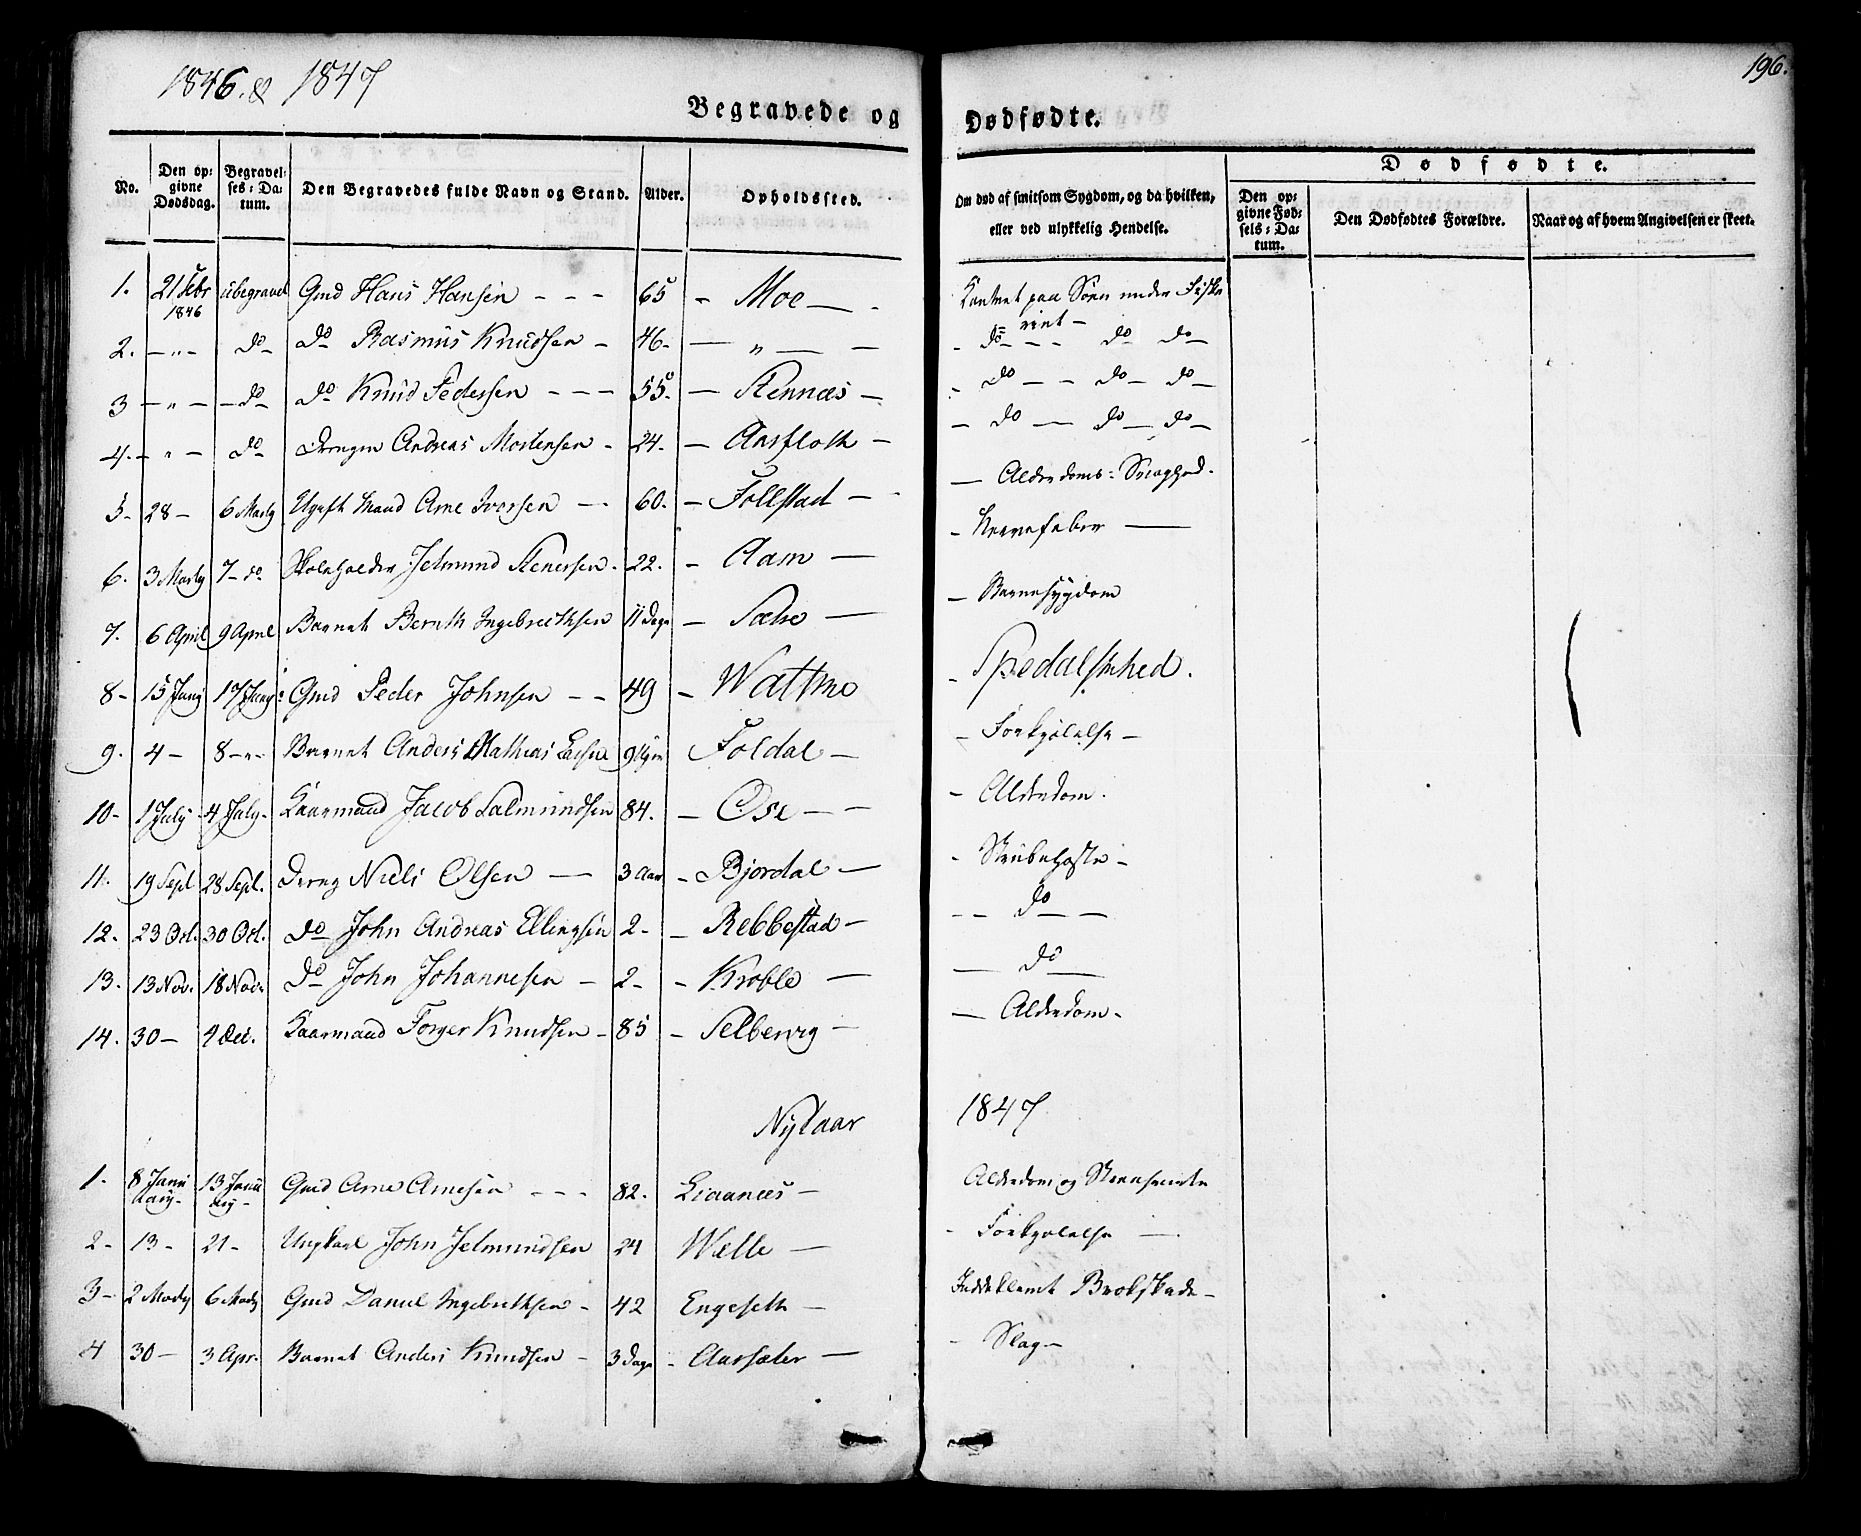 1846. & 1847
196.
Begravede og Dødfødte.
No. Den opgivne Dødsdag. Begravelses-Datum. Den Begravedes fulde Navn og Stand. Alder. Opholdssted. Om død af smitsom Sygdom, og da hvilken, eller ved ulykkelig Hendelse.
Dødfødte.
Den opgivne Fødsels-Datum. Den Dødfødtes Forældre. Naar og af hvem Angivelsen er skeet.
1. 21 Febr 1846 ubegravet Gmd Hans Hansen - - - 65 - Moe - Kantret paa Søen under Fiskeriet -
2. - „ - do - do Rasmus Knudsen - 46 - - „ - - do - - do do -
3 - „ - - do - do Knud Pedersen - - - 55. - Stennæs - - do - - do - do -
4. - „ - do Drengen Andreas Mortensen - 24. - Aarsfloth - - do - do - do -
5 - 28 - 6 Marty Ugift Mand Arne Iversen - 60. - Follstad - - Alderdoms-Svaghed.
6. 3 Marty 7 - do Skoleholder Jetmund Stenersen - 22. - Aam - - Nervefeber -
7. 6 April 9 April Barnet Bernth Ingebrethsen 11 Dage - Sæbø - - Barnesygdom
8 - 15 Juny 17 Juny Gmd Peder Johnsen - - 49 - Wattmo - Spedalskhed.
9. 4 - 8 - „ - Barnet Anders Mathias 9 Foldal - - Forkjølelse -
10 - 1 July 4 July - Kaarmand Jacob Salmundsen 84. - Ose - - - Alderdom.
11. 19 Sept 28 Sept. Dreng Niels Olsen - 3 Aar - Bjordal - - Strubehoste -
12. 23 Oct. 30 Oct. do John Andreas Ellingsen 2 - - Rebbestad - - - do -
13. 13 Nov. 18 Nov. do John Johannesen - 2 - - Kroble - - do -
14. 30 - 4 Dec. Kaarmand Torger Knudsen - 85 - Selbervig - - Alderdom -
Nytaar 1847
1. 8 Januuary - 13 Januuary - Gmd Arne Arnesen - - - 82. Liaanæs - Alderdom og Steensmerte
2 - 13 - 21 - Ungkarl John Jetmundsen 24 Welle - - Forkjølelse -
3 - 2 Marty 6 Marty Gmd Daniel Ingebrethsen - 42 Engeseth - Indeklemt Brokskade -
4 30 - 3 Apr. Barnet Anders Knudsen - 3 Dage - Aarsæter - - Slag -